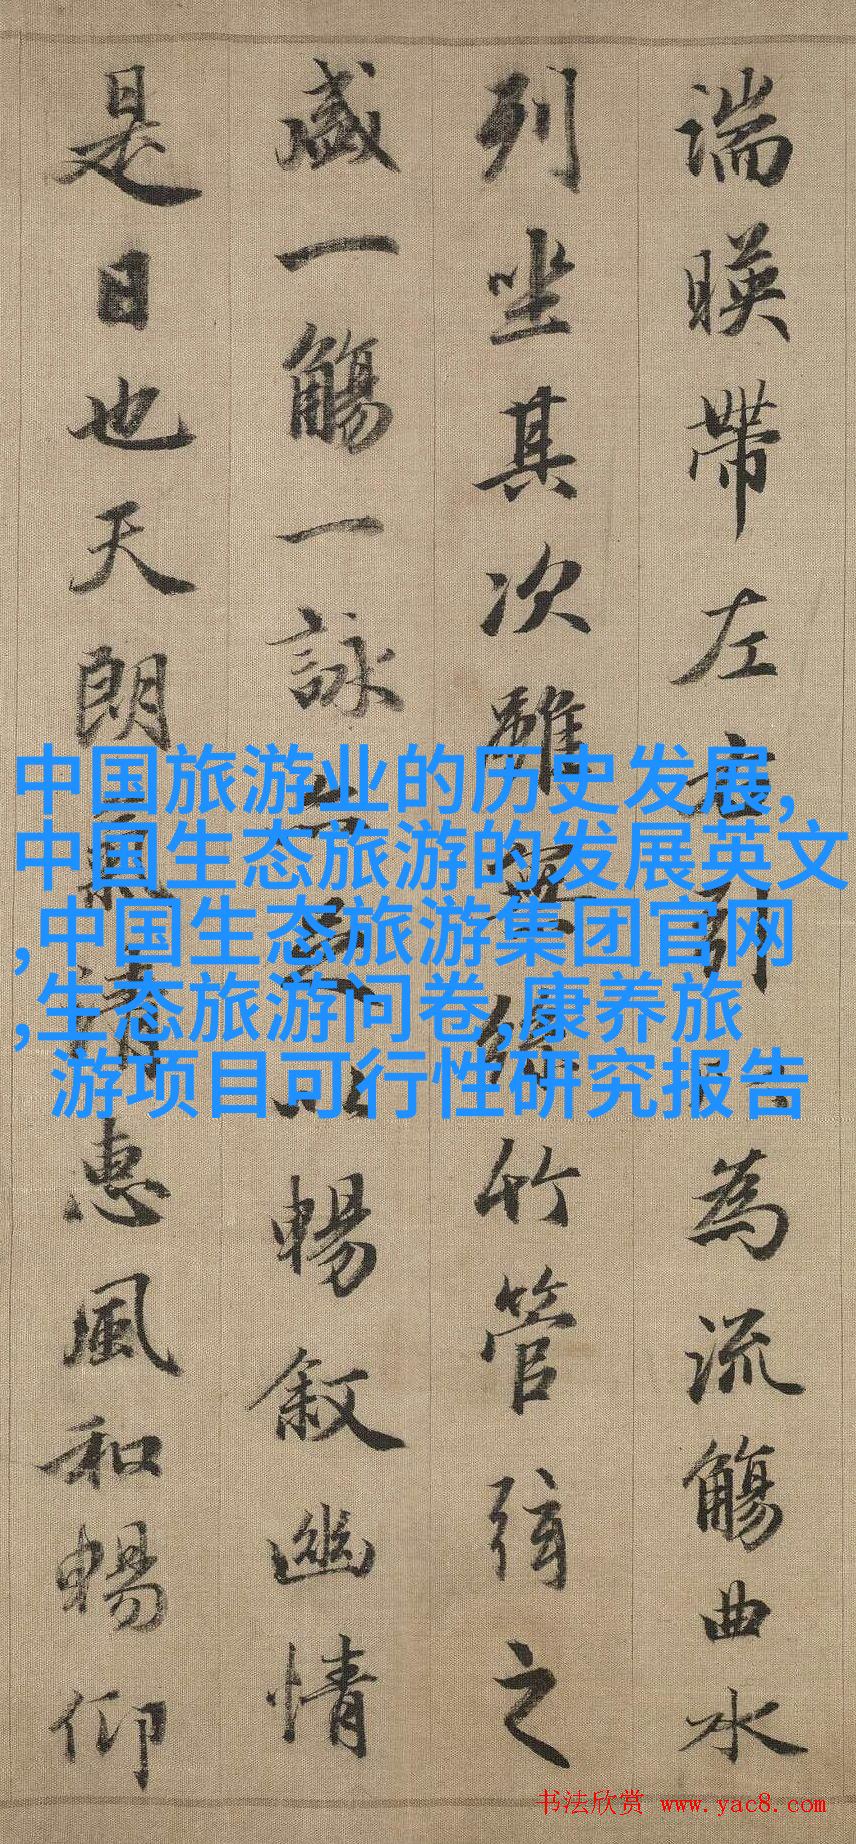 湍暎帶左右引以為流觴曲水
列坐其次雖無絲竹管弦之
盛一觴一詠亦足以暢敘幽情
是日也天朗氣清惠風和暢仰
中国旅游业的历史发展,
中国生态旅游的发展英文
,中国生态旅游集团官网
,生态旅游问卷,康养旅
游项目可行性研究报告
书法欣赏 www.yac8.com